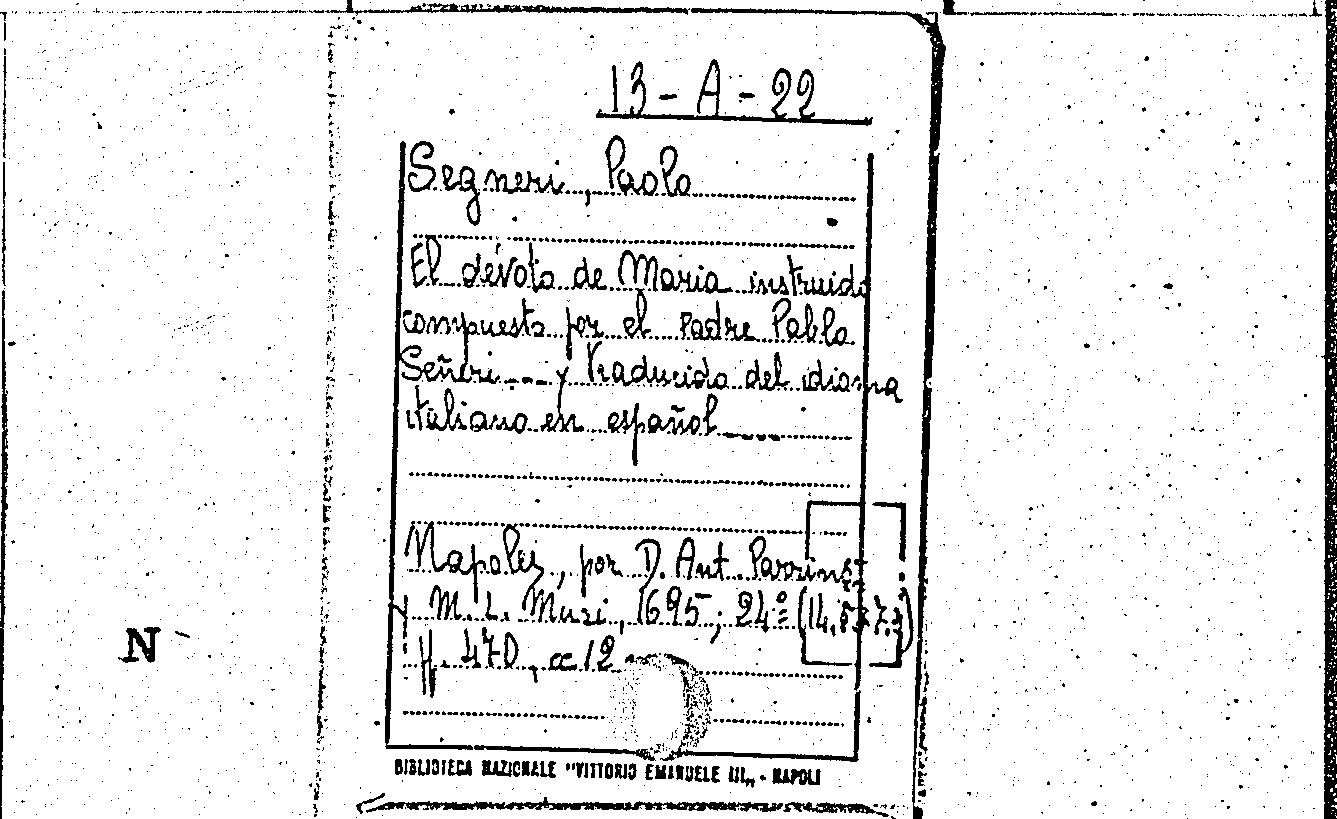 13-A-22
Segneri, Paolo
El devoto de Maria instruido
compuesto por el Padre Pablo
Señeri --- y traducido del idioma
italiano en español ----
Napoles, por D. Ant. Parrino
M. L. Muzi, 1695; 24º (14,5x7,
pp. 470, cc 12
N
BIBLIOTECA NAZIONALE "VITTORIO EMANUELE III„ - NAPOLI